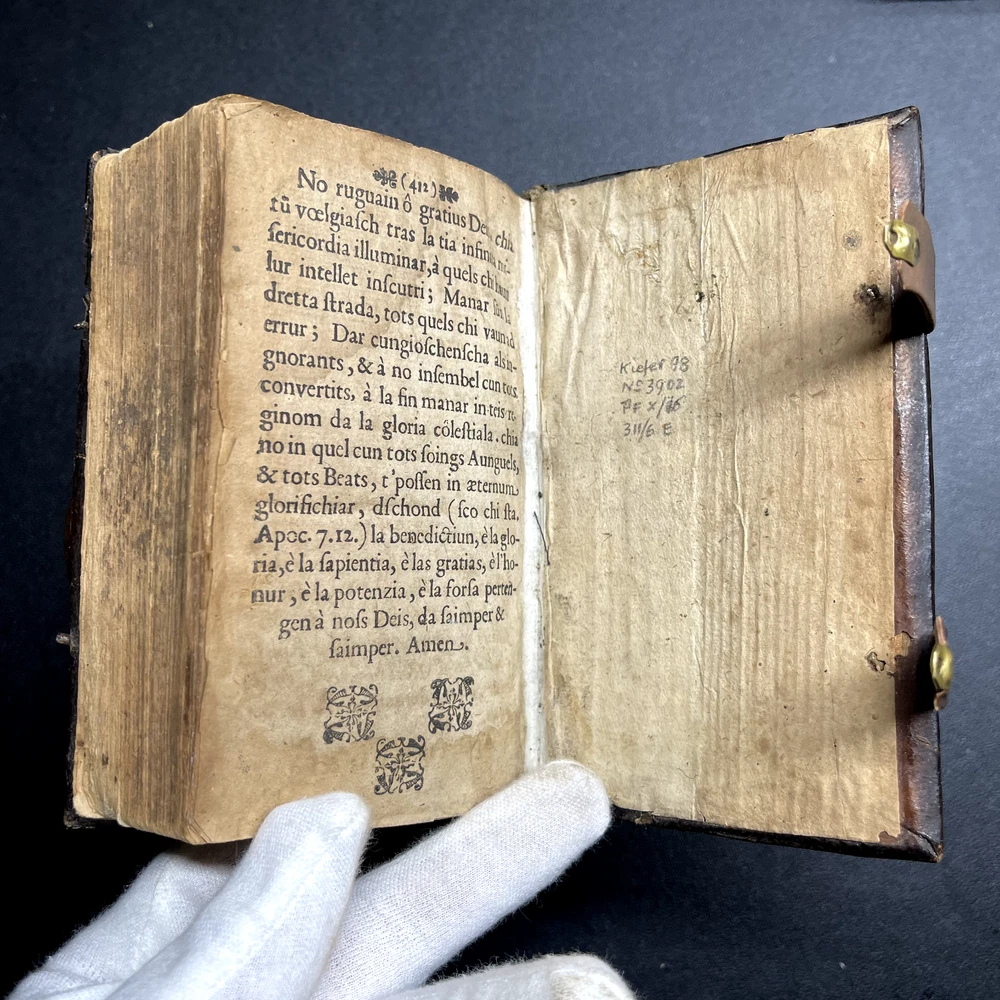 (412)
No ruguain ô gratius Deis chia
tū vœlgiaſch tras la tia infinita mi-
ſericordia illuminar, à quels chi haun
lur intellet inſcutri; Manar ſün la
dretta ſtrada, tots quels chi vaun id
errur; Dar cungioſchenſcha als in-
gnorants, & à no inſembel cun tots
convertits, à la fin manar in teis re-
ginom da la gloria côleſtiala. chia
no in quel cun tots ſoings Aunguels,
& tots Beats, t'poſſen in æternum
glorifichiar, dſchond (ſco chi ſta.
Apoc. 7.12.) la benedictiun, è la glo-
ria, è la ſapientia, è las gratias, è l'ho-
nur, è la potenzia, è la forſa perten-
gen à noſs Deis, da ſaimper &
ſaimper. Amen.
Kiefer 98
No 3902
311/6 E